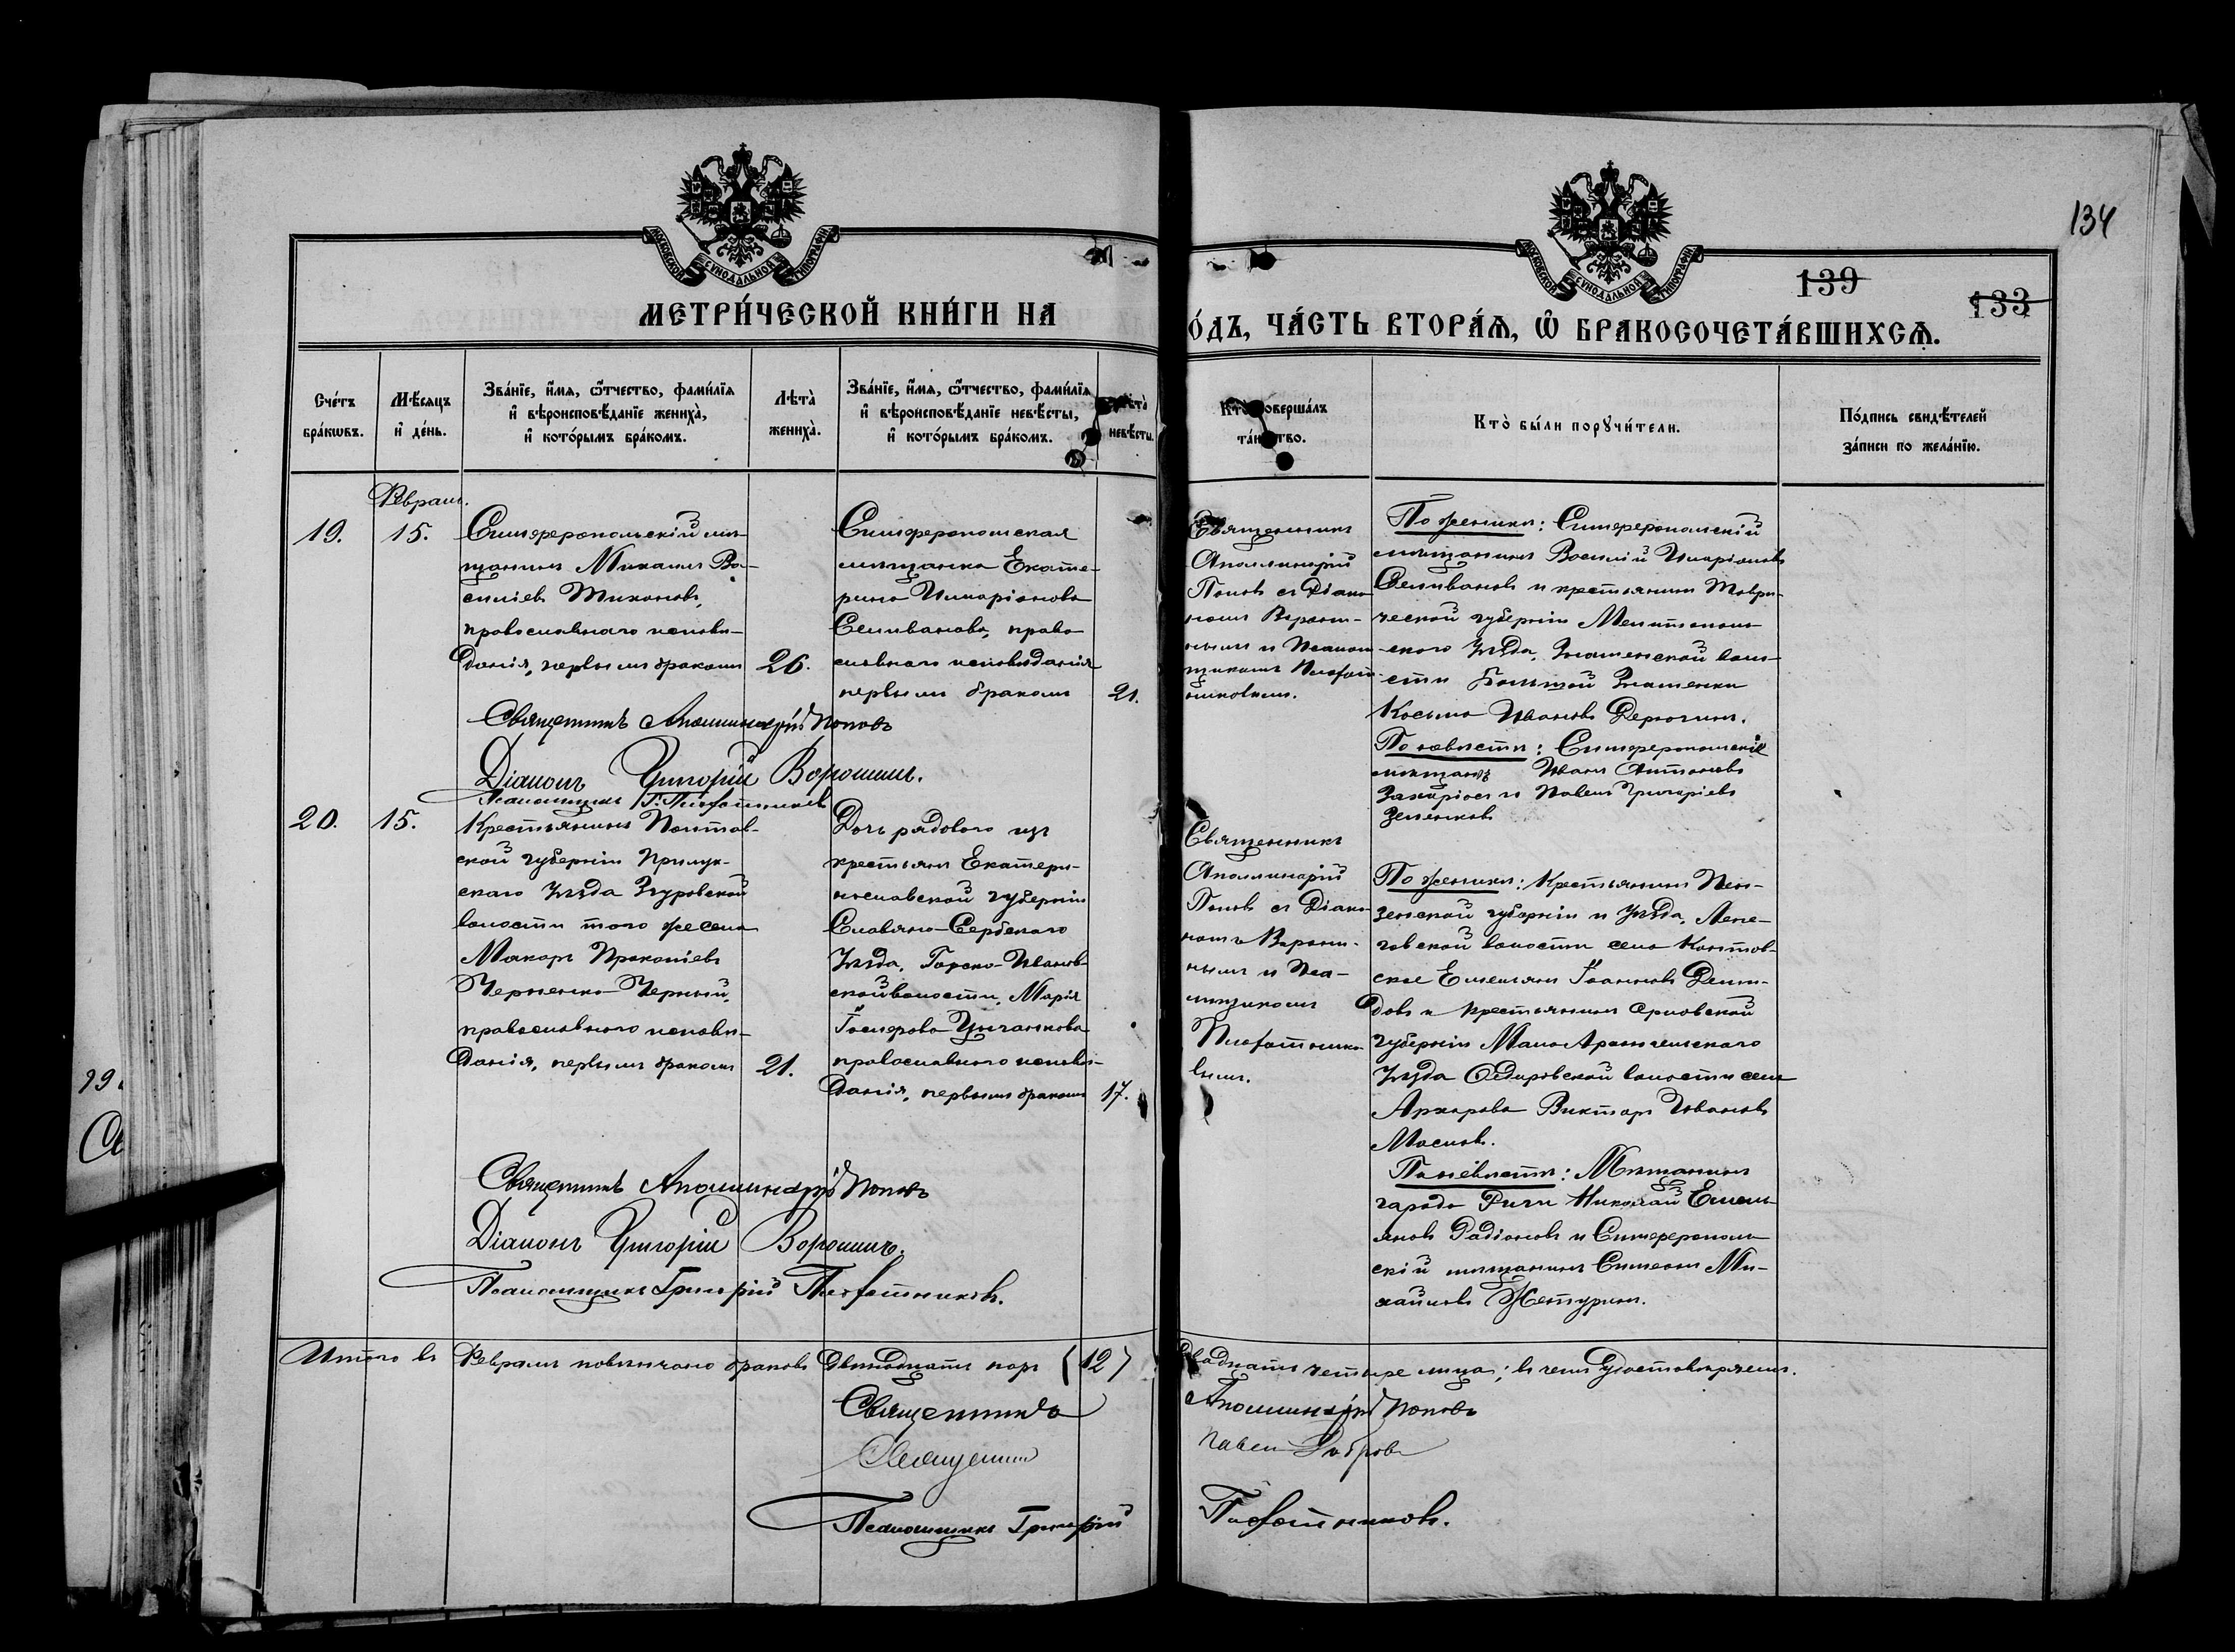 134
139
133
МОСКОВСКОЙ СУНОДАЛЬНОЙ ТИПОГРАФІИ
МОСКОВСКОЙ СУНОДАЛЬНОЙ ТИПОГРАФІИ
МЕТРИ́ЧЕСКОЙ КНИ́ГИ НА
О́ДЪ, ЧА́СТЬ ВТОРА́Я, Ѽ БРАКОСОЧЕТА́ВШИХСЯ.
Сче́тъ
бра́кѡвъ.
Мѣ́сяцъ
и҆ де́нь.
Зва́нїе, и҆́мя, ѻ҆́тчество, фами́лїя
и҆ вѣроисповѣ́данїе жениха̀,
и҆ кото́рымъ бра́комъ.
Лѣта̀
жениха̀.
Зва́нїе, и҆́мя, ѻ҆́тчество, фами́лїя
и҆ вѣроисповѣ́данїе невѣ́сты,
и҆ кото́рымъ бра́комъ.
Лѣта̀
невѣ́сты.
Кто̀ соверша́лъ
та́инство.
Кто̀ бы́ли порꙋчи́тели.
По́дпись свидѣ́телей
за́писи по жела́нїю.
Феврал.
19.
15.
Симферопольскій мѣ-
щанинъ Михаилъ Ва-
силіевъ Тихоновъ,
православнаго исповѣ-
данія, первымъ бракомъ
26.
Симферопольская
мѣщанка Екате-
рина Иларіонова
Селиванова, право-
славнаго исповѣданія
первымъ бракомъ
21.
Священникъ
Аполлинарій
Поповъ съ Діако-
номъ Ворони-
нымъ и Псалом-
щикомъ Плофот-
никовымъ.
По женихѣ: Симферопольскій
мѣщанинъ Василій Иларіоновъ
Селивановъ и крестьянинъ Таври-
ческой губерніи Мелитополь-
скаго Уѣзда, Знаменской воло-
сти Большой Знаменки
Косьма Ивановъ Дерюгинъ.
По невѣстѣ: Симферопольскіе
мѣщане Иванъ Антоновъ
и Павелъ Григоріевъ
Зеленковъ
Священникъ Аполлинарій Поповъ
Діаконъ Григорій Воронинъ.
Псаломщикъ Г. Плофотниковъ
20.
15.
Крестьянинъ Полтав-
ской губерніи Прилук-
скаго Уѣзда Згуровской
волости того же села
Макаръ Прокопіевъ
Черненко-Черный,
православнаго исповѣ-
данія, первымъ бракомъ
21.
Дочь рядового изъ
крестьянъ Екатери-
нославской губерніи
Славяно-Сербскаго
Уѣзда, Горско-Иванов-
ской волости, Марія
Іосифова Цыганкова
православнаго исповѣ-
данія, первымъ бракомъ
17.
Священникъ
Аполлинарій
Поповъ съ Діако-
номъ Ворони-
нымъ и Пса-
мщикомъ
Плофотнико-
вымъ.
По женихѣ: Крестьянинъ Пен-
зенской губерніи и Уѣзда,
волости села
Емельянъ Іоанновъ Деми-
довъ и крестьянинъ Орловской
губерніи Мало Архангельскаго
Уѣзда волости села
Архарова Викторъ Ивановъ
Масловъ.
По невѣстѣ: Мѣщанинъ
города Риги Николай Емель-
яновъ Радіоновъ и Симферополь-
скій мѣщанинъ Симеонъ Ми-
хайловъ
Священникъ Аполлинарій Поповъ
Діаконъ Григорій Воронинъ.
Псаломщикъ Григорій Плофотниковъ.
Итого въ Февралѣ повѣнчано браковъ двѣнадцать паръ (12)
двадцать четыре лица; въ чемъ удостовѣряемъ.
Священникъ Аполлинарій Поповъ
Священникъ Павелъ
Псаломщикъ Григорій Плофотниковъ.